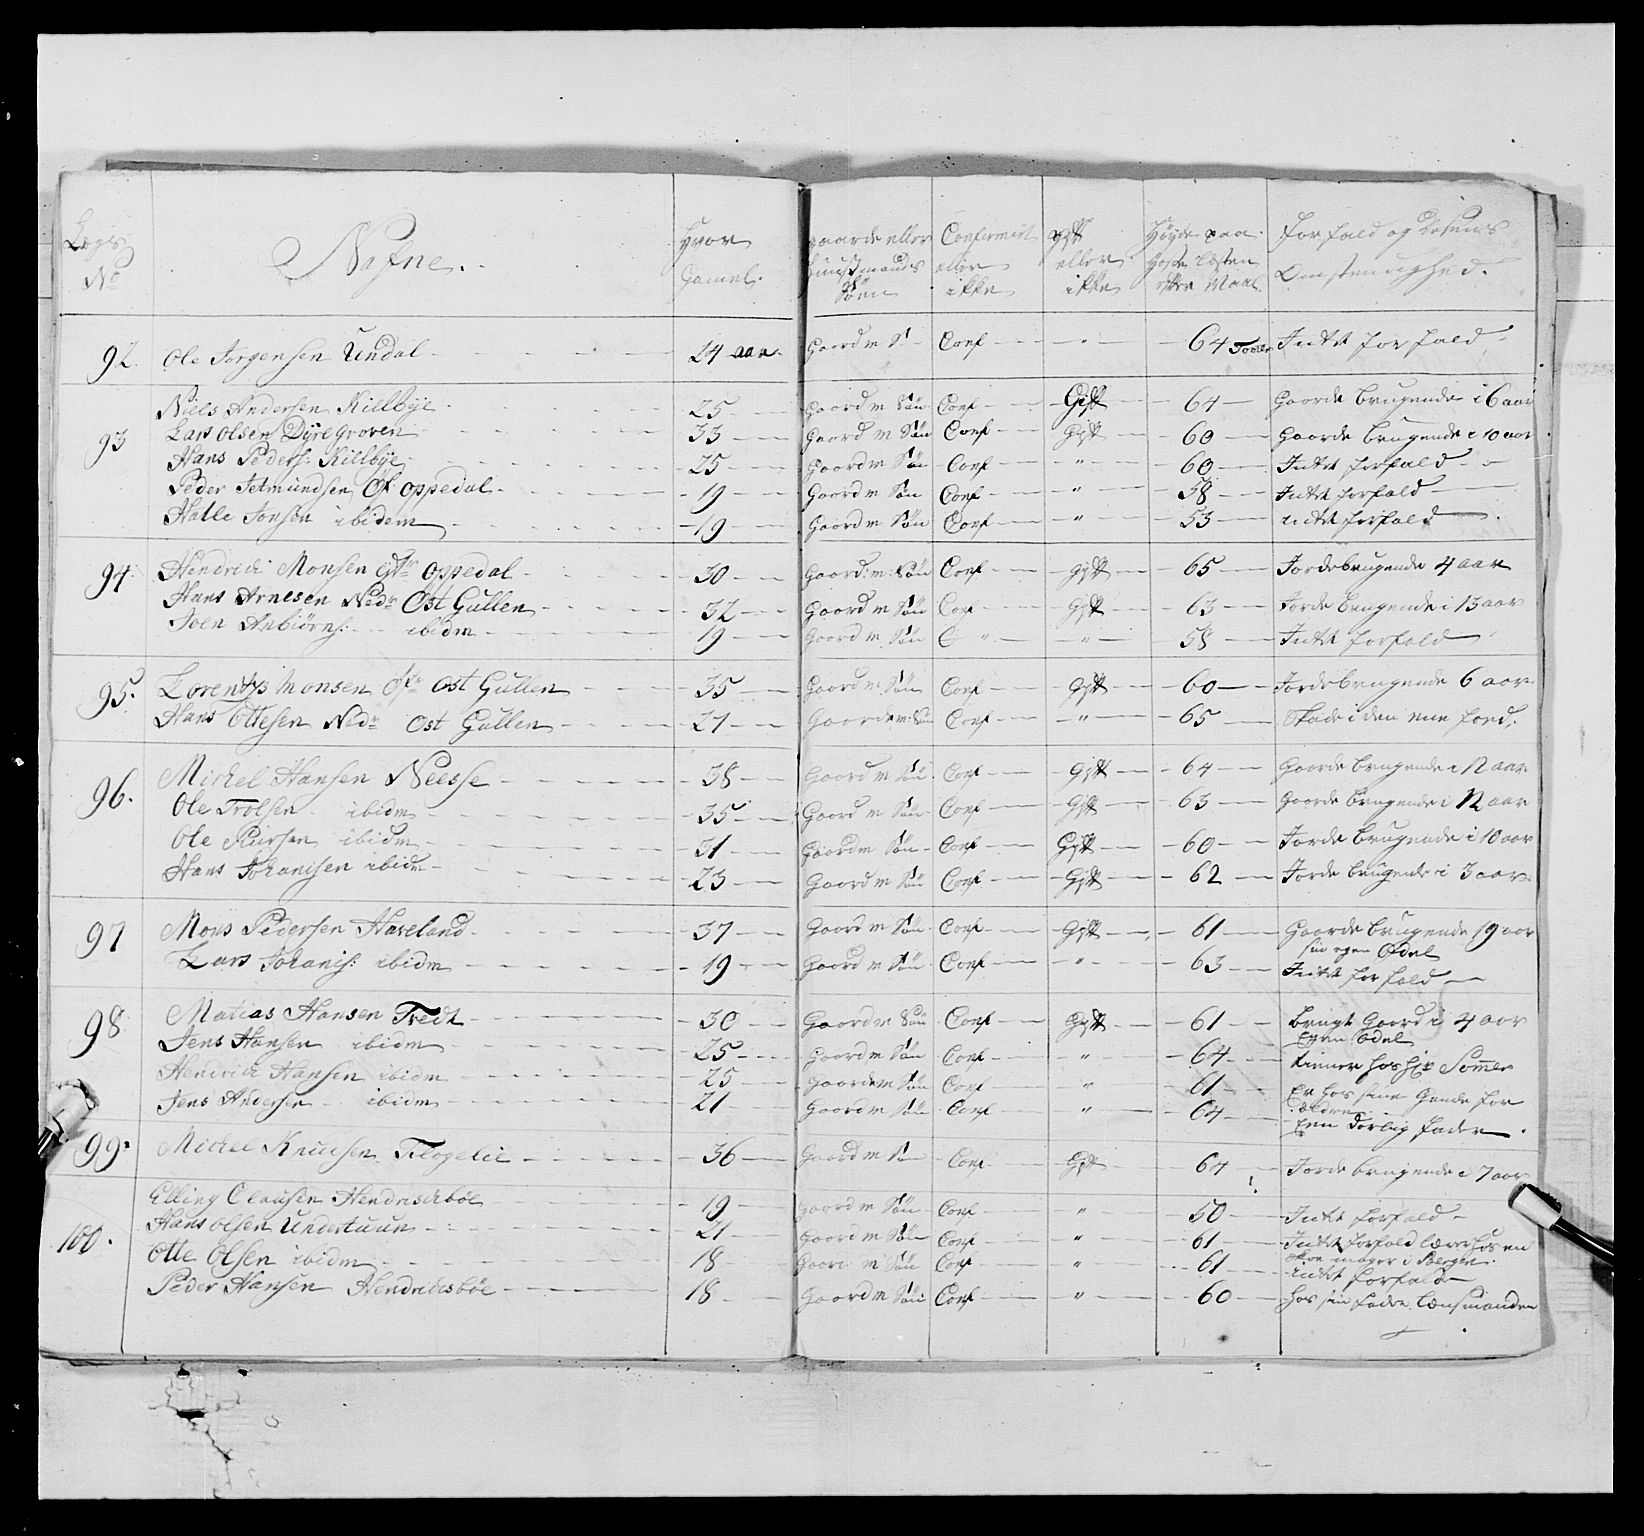 Legs No | Nafne. | Hvor Gamel. | Gaards eller Huusmands Søn | Confirmirt eller ikke | Gift eller ikke | Høyde paa | Forfald og Omstendighed.
92. Ole Jørgensen Undal 24 aar. Gaardm S Conf " 64 Tomer Intet forfald
Niels Andersen Killbye 25 Gaardm Søn Conf Gift 64 Gaards brugende i 6 aar
93 Lars Olsen Dyregroven 33 Gaardm Søn Conf Gift 60 Gaards brugende i 10 aar
Hans Peders: Killbye 25 Gaardm Søn Conf " 60 Intet forfald
Peder Jetmundsen Oppedal 19 Gaardm Søn Conf " 58 Intet forfald
Halle Jonsen ibidem 19 Gaardm Søn Conf " 53 intet forfald
94. Hendrich Monsen Oppedal 30 Gaard:m: Søn Conf gift 65 Jordebrugende 4 aar
Hans Arnesen Nedr Ost Gullen 32 Gaardm Søn Con gift 63 Jorde brugende i 13 aar
Joen Anbiørns: ibidm 19 Gaardm Søn C " " 58 Intet forfald
95. Lorentz Monsen Ost Gullen 35 Gaardm Søn Conf gift 60 Jordebrugende 6 aar
Hans Ottesen Nedr Ost Gullen 27 Gaardem: Søn Conf " 65 Skade i den ene fod.
96. Michel Hansen Neesse 38 Gaardm Søn Conf gift 64 Gaards brugende i 12 aar
Ole Trolsen ibidm 35 Gaardm Søn Conf gift 63 Gaards brugende i 12 aar
Ole ibidm 31 Gaardm Søn Conf Gift 60 Jorde brugende i 10 aar
Hans Johanisen ibidm 23 Gaardm Søn Conf Gift 62 Jorde brugende i 3 aar
97 Mons Pedersen Haveland 37 Gaardm Søn Conf Gift 61 Gaards brugende 19 aar
sin egen Odel
Lars Johanis: ibidm 19 Gaardm Søn Conf " 63 Intet forfald
98 Matias Hansen Tredt 30 Gaardm Søn Conf Gift 61 brugt Gaard i 4 aar
Egen Odel
Jens Hansen ibidm 25 Gaardm Søn Conf " 64 tiener hos Sommer
Hendrich Hansen ibidm 25 Gaardem Søn Conf " 61 Er hos sine for
ældre
Jens Andersen ibidm 21 Gaardm Søn Conf " 64 Een fader
99. Michel Knudsen 36 Gaardm Søn Conf Gift 64 Jorde brugende i 7 aar
Elling Clausen Hendrischbøe 19 Gaardm Søn Conf " 50 Intet forfald
100. Hans Olsen Undertuun 21 Gaardm Søn Conf " 61 Intet forfald lærer hos en
mager i Bergen
Otte Olsen ibidm 18 Gaard m Søn Conf " 61 intet forfald
Peder Hansen Hendrichsbøe 18 Gaardm Søn Conf " 60 hos sin fader Lensmanden